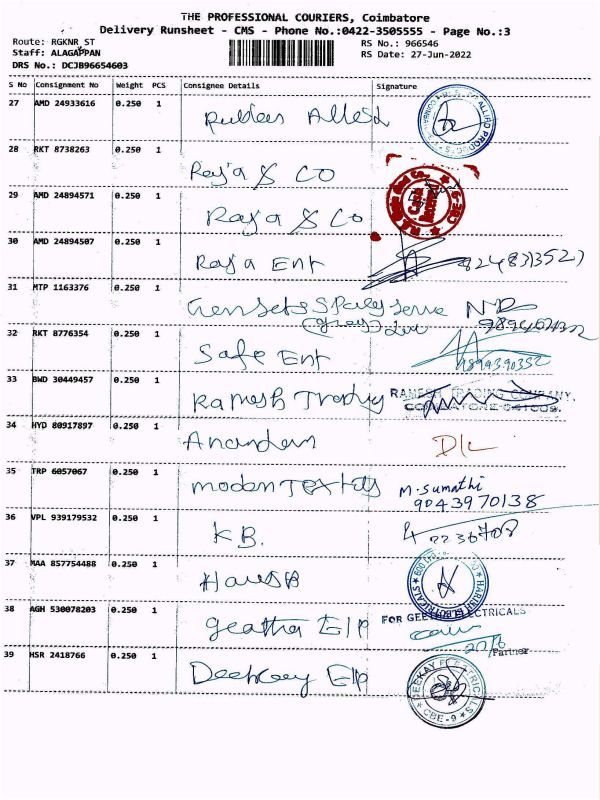 THE PROFESSIONAL COURIERS, Coimbatore
Delivery Runsheet - CMS - Phone No.:0422-3505555 - Page No.:3
Route: RGKNR_ST
RS No.: 966546
Staff: ALAGAPPAN
RS Date: 27-Jun-2022
DRS No.: DCJB96654603
S No Consignment No Weight PCS Consignee Details Signature
27 AMD 24933616 0.250 1 Allied
28 RKT 8738263 0.250 1 Raja & CO
29 AMD 24894571 0.250 1 Raja & Co
30 AMD 24894507 0.250 1 Raja Ent
31 MTP 1163376 0.250 1 Gensets
32 RKT 8776354 0.250 1 Safe Ent
33 BWD 30449457 0.250 1 Ramesh Trading RAMESH TRADING COMPANY,
COIMBATORE-641009.
34 HYD 80917897 0.250 1 Anandam D/L
35 TRP 6057067 0.250 1 Modern Textiles M. Sumathi
9043970138
36 VPL 939179532 0.250 1 KB.
37 MAA 857754488 0.250 1
38 AGH 530078203 0.250 1 Geatha E/P FOR GEETHA ELECTRICALS
27/6
Partner
39 HSR 2418766 0.250 1 Deekay E/P DEEKAY ELECTRICALS
CBE-9